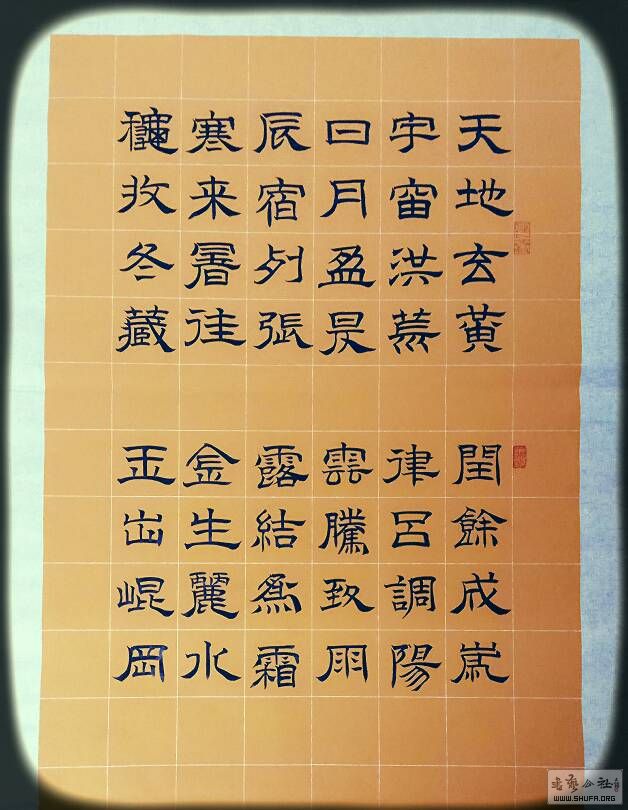 天地玄黃
宇宙洪荒
日月盈昃
辰宿列張
寒来暑往
穐收冬藏
閏餘成歲
律呂調陽
雲騰致雨
露結為霜
金生麗水
玉出崐岡
WWW.SHUFA.ORG